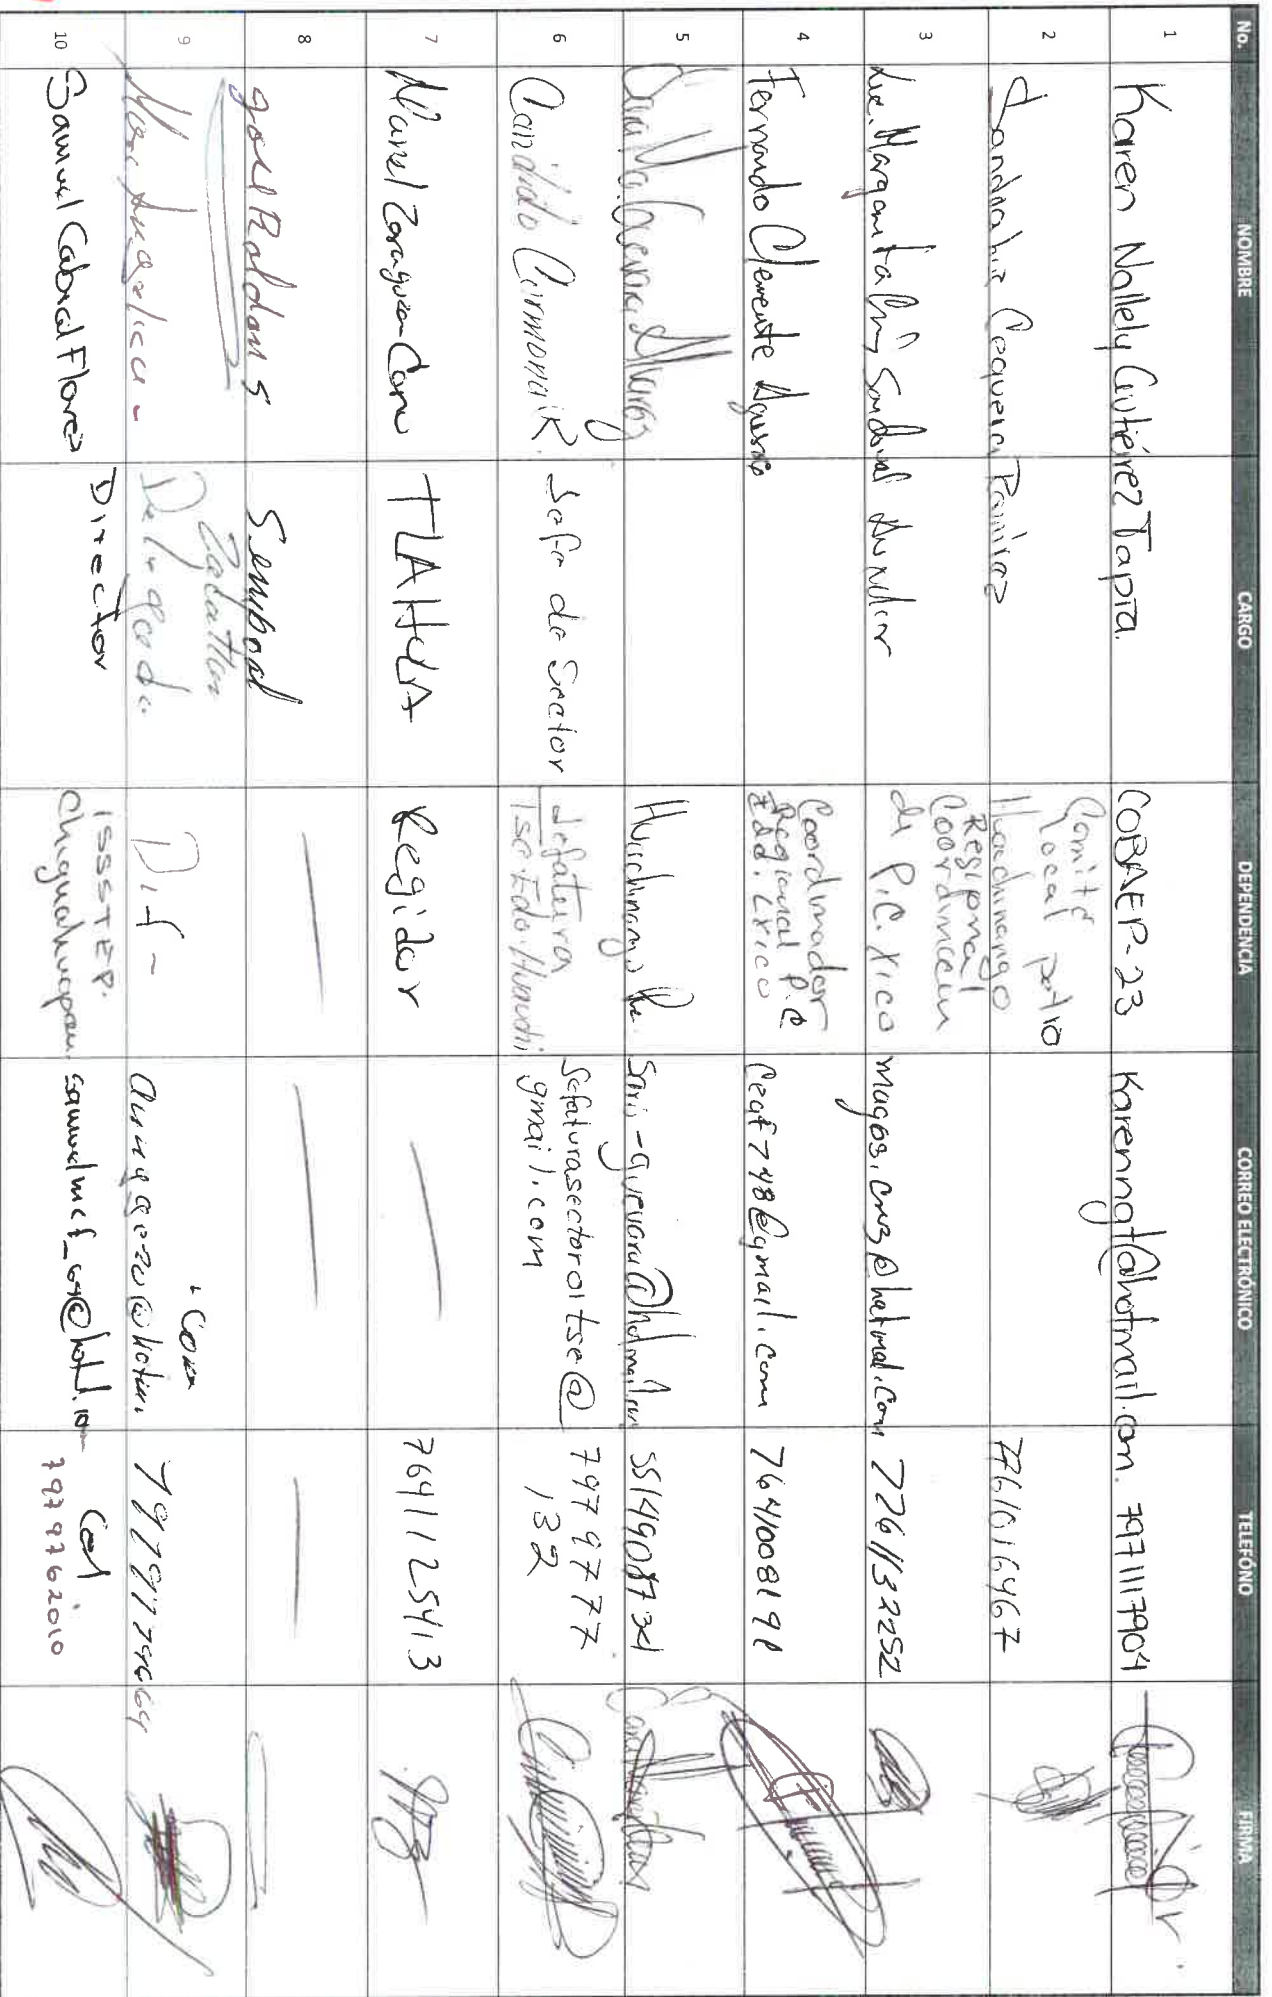 No. NOMBRE CARGO DEPENDENCIA CORREO ELECTRÓNICO TELEFÓNO FIRMA
1 Karen Nallely Gutiérrez Tapia. COBAEP-23 Karenngt@hotmail.com. 7971117904
2 Coquera Ramirez Comité Local patio Huauchinango 7761016467
3 Lic. Margarita Cruz Sandoval Regional Coordinacion de P.C. Xico magos.cruz@hotmail.com 7761132252
4 Fernando Clemente Coordinador Regional P.C Edd. Xico Ceaf748@gmail.com 7641008191
5 Sara Ma. Guevara Alvarez Huachinango Pue. Sari-guevara@hotmail.com 5514908734
6 Candido Carmona R. Jefe de Sector Jefatura Tse Edo. Huauchi jefaturasector01tse@
gmail.com 797 97777
132
7 Manel Zaragoza Cano TLAHUA Regidor — 7641125413
8 Joel Roldan S Sembrad — — —
9 Mari Angelica - Zacatlan
Delegada Dif - .com
10 Samuel Cabral Flores Director ISSSTEP.
Chignahuapan. samuelmcf_69@hotl. Cel
7979762010